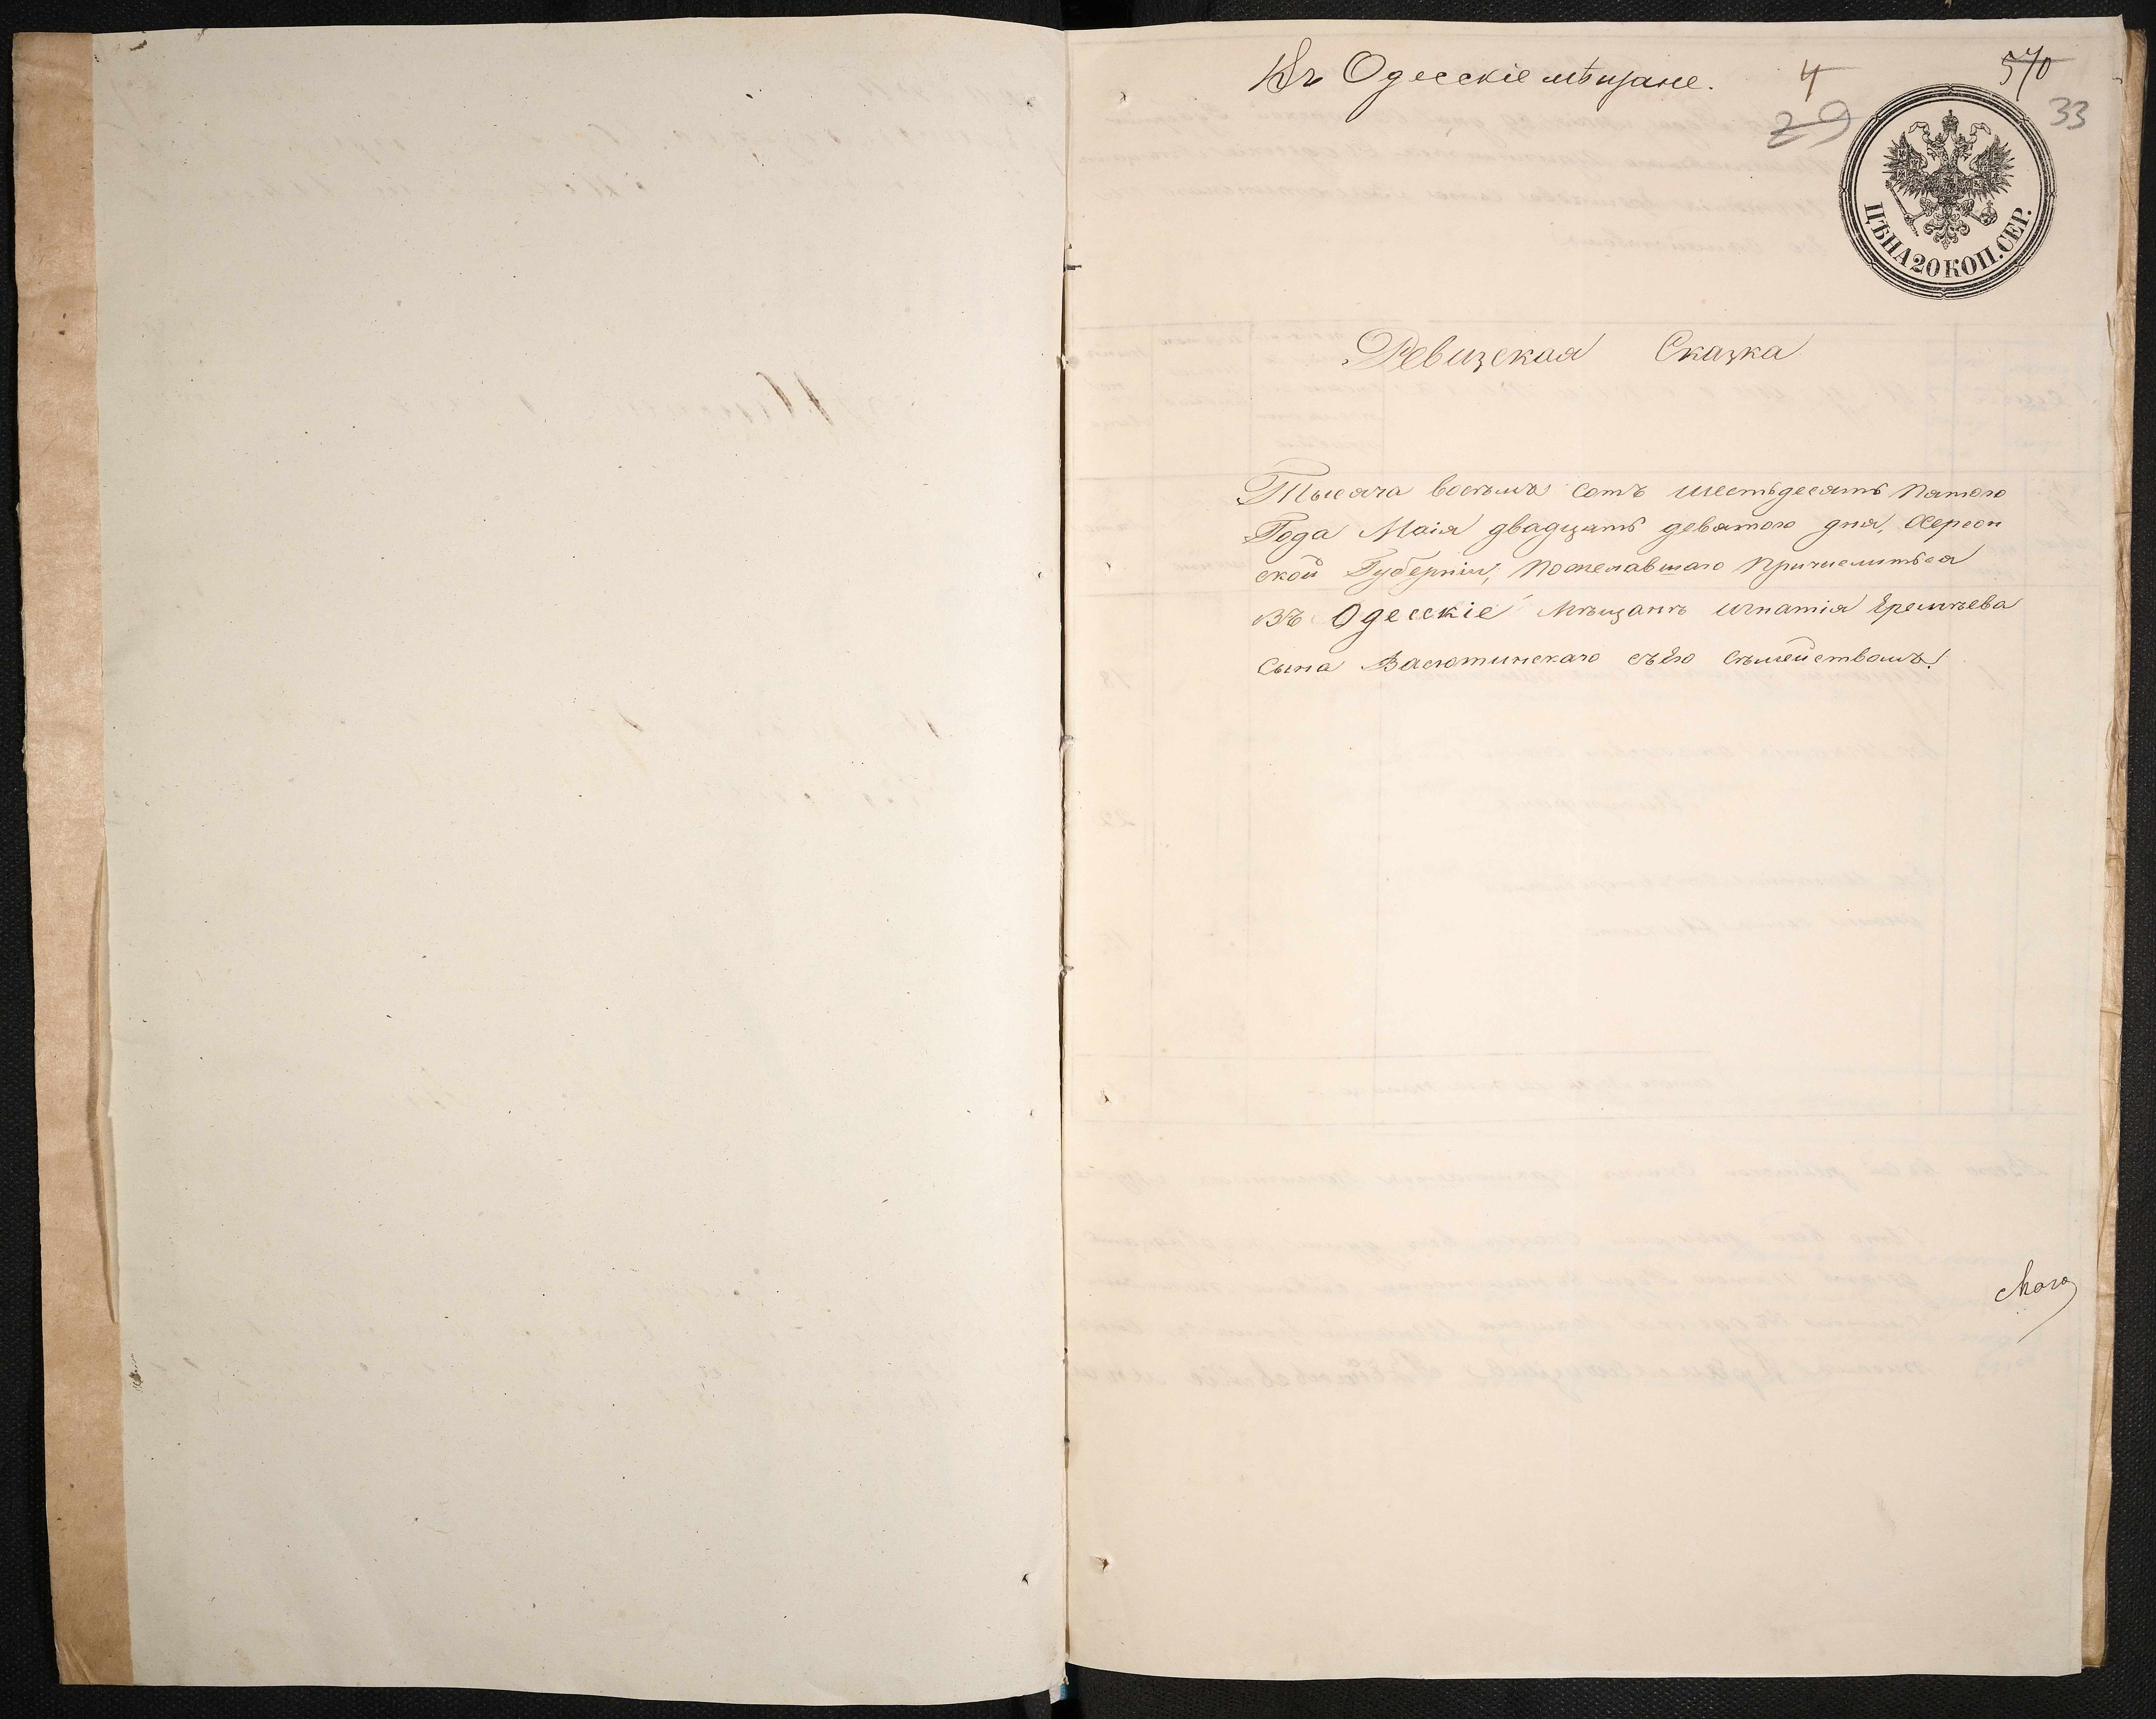 Въ Одесскіе мѣщане.
4
570
29
33
ЦѢНА 20 КОП. СЕР.
Ревизская Сказка
Тысяча восемъ сотъ шестьдесятъ Пятого
Года Маія двадцать девятого дня, Херсон
ской Губерніи, Пожелавшаго Причислиться
Въ Одесскіе Мѣщанѣ Игнатія Еремѣева
Сына Васютинскаго съ Его Сѣмействомъ!